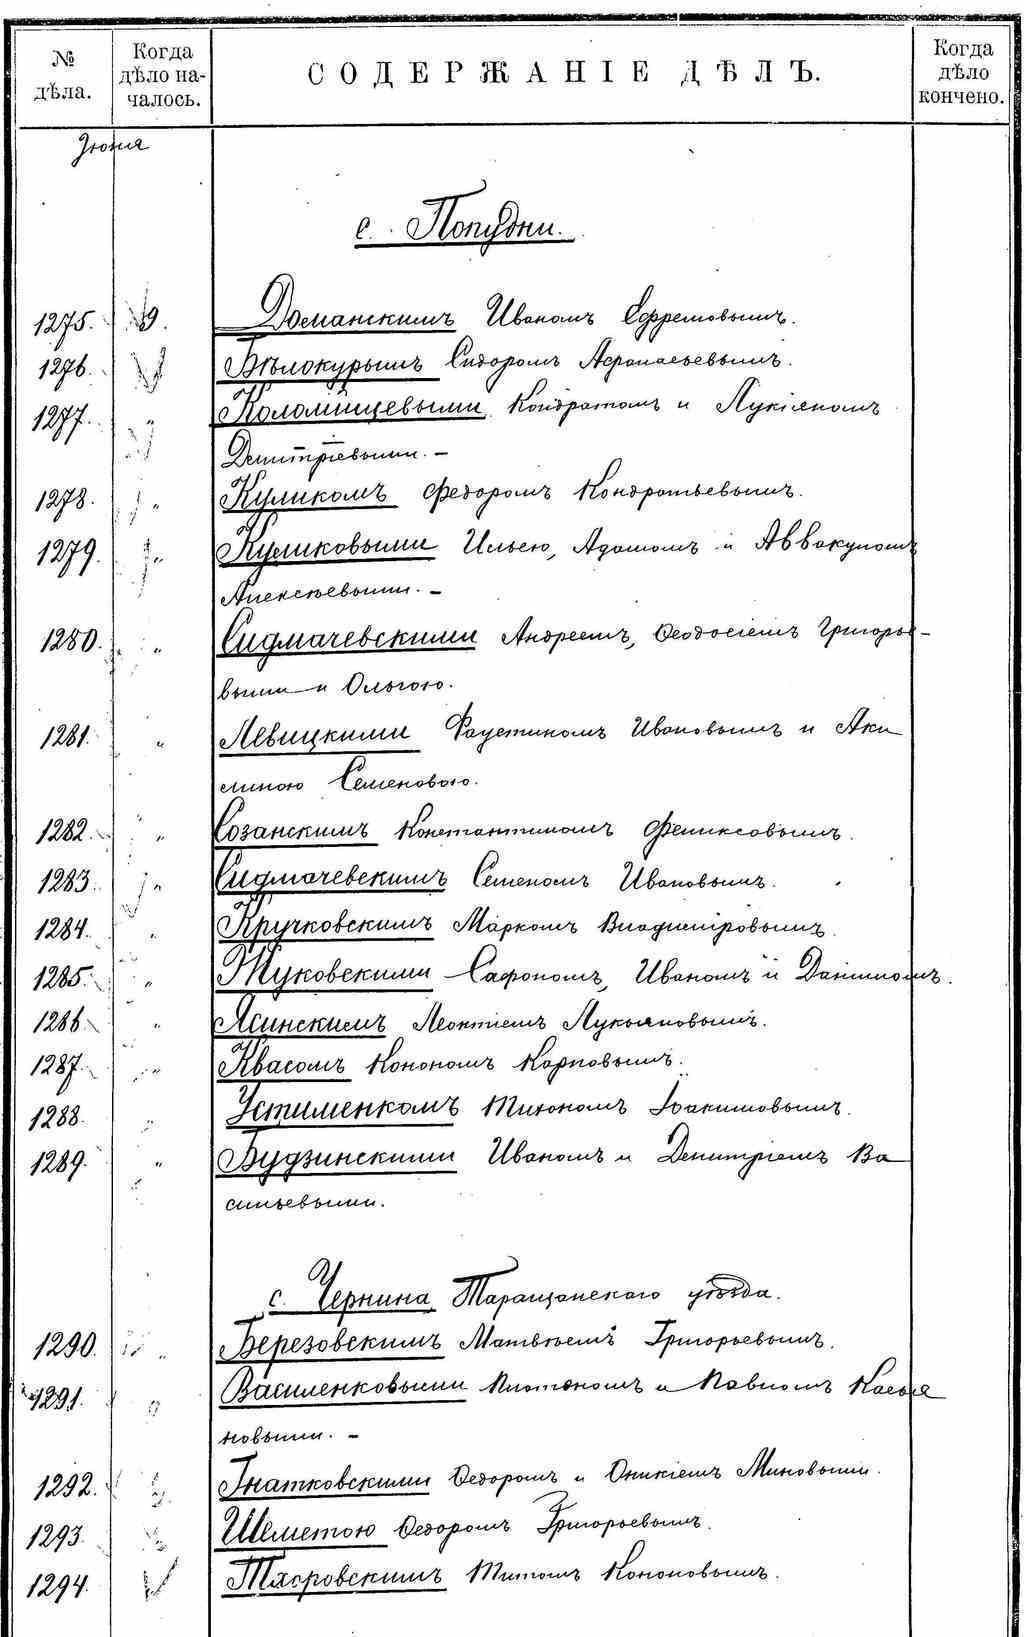 № дѣла.
Когда дѣло началось.
СОДЕРЖАНІЕ ДѢЛЪ.
Когда дѣло кончено.
Іюня
с. Попудни.
1275. 9. Доманскимъ Иваномъ Ефремовымъ.
1276. Бѣлокурымъ Сидоромъ Афанасьевымъ.
1277. " Коломійцевыми Кондратомъ и Лукіяномъ
Демитріевыми. –
1278. " Куликомъ Федоромъ Кондратьевымъ.
1279. " Куликовыми Ильею, Адамомъ и Аввакумомъ
Алексѣевыми. –
1280. " Сидмачевскими Андреемъ, Феодосіемъ Григорье-
выми и Ольгою.
1281. " Левицкими Фаустиномъ Ивановымъ и Аки
линою Семеновою.
1282. " Созанскимъ Константиномъ Феликсовымъ.
1283. " Сидмачевскимъ Семеномъ Ивановымъ.
1284. " Кручковскимъ Маркомъ Владиміровымъ.
1285. " Жуковскими Сафономъ, Иваномъ и Даніиломъ.
1286. " Ясинскимъ Леонтіемъ Лукьяновымъ.
1287. " Квасомъ Конономъ Карповымъ.
1288. " Устименкомъ Тихономъ Іоакимовымъ.
1289. " Будзинскими Иваномъ и Демитріемъ Ва
сильевыми.
с. Чернина Таращанскаго уѣзда.
1290. " Березовскимъ Матвѣемъ Григорьевымъ.
1291. " Василенковыми Платономъ и Павломъ Касья
новыми. –
1292. " Гнатковскими Федоромъ и Оникіемъ Миновыми.
1293. " Шеметою Федоромъ Григорьевымъ.
1294. Титомъ Кононовымъ.